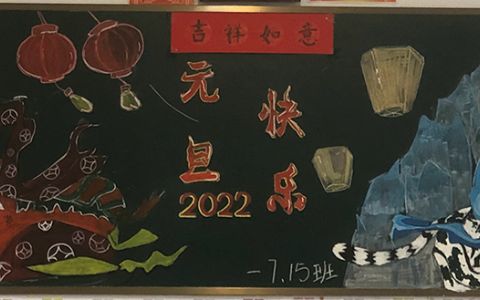 吉祥如意
元旦
快乐
2022
一7.15班